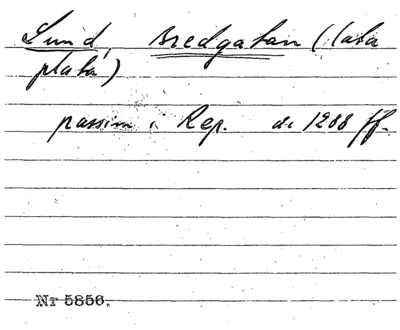 Lund, Bredgatan (lata
plata)
passim i Rep. de 1288 ff.
Nr 5856.